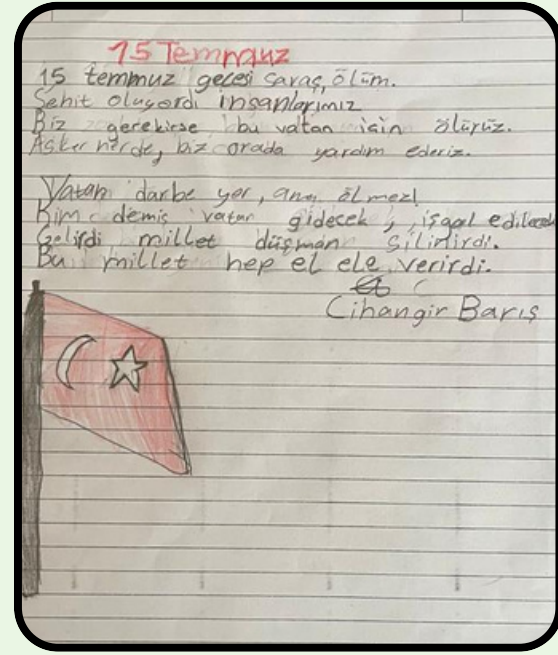 15 Temmuz
15 temmuz gecesi savaş, ölüm.
Şehit oluyordu insanlarımız
Biz gerekirse bu vatan için ölürüz.
Asker nerde, biz orada yardım ederiz.
Vatan darbe yer, ama ölmez!
Kim demiş vatan gidecek, işgal edilecek
Gelirdi millet düşman silinirdi.
Bu millet hep el ele verirdi.
Cihangir Barış